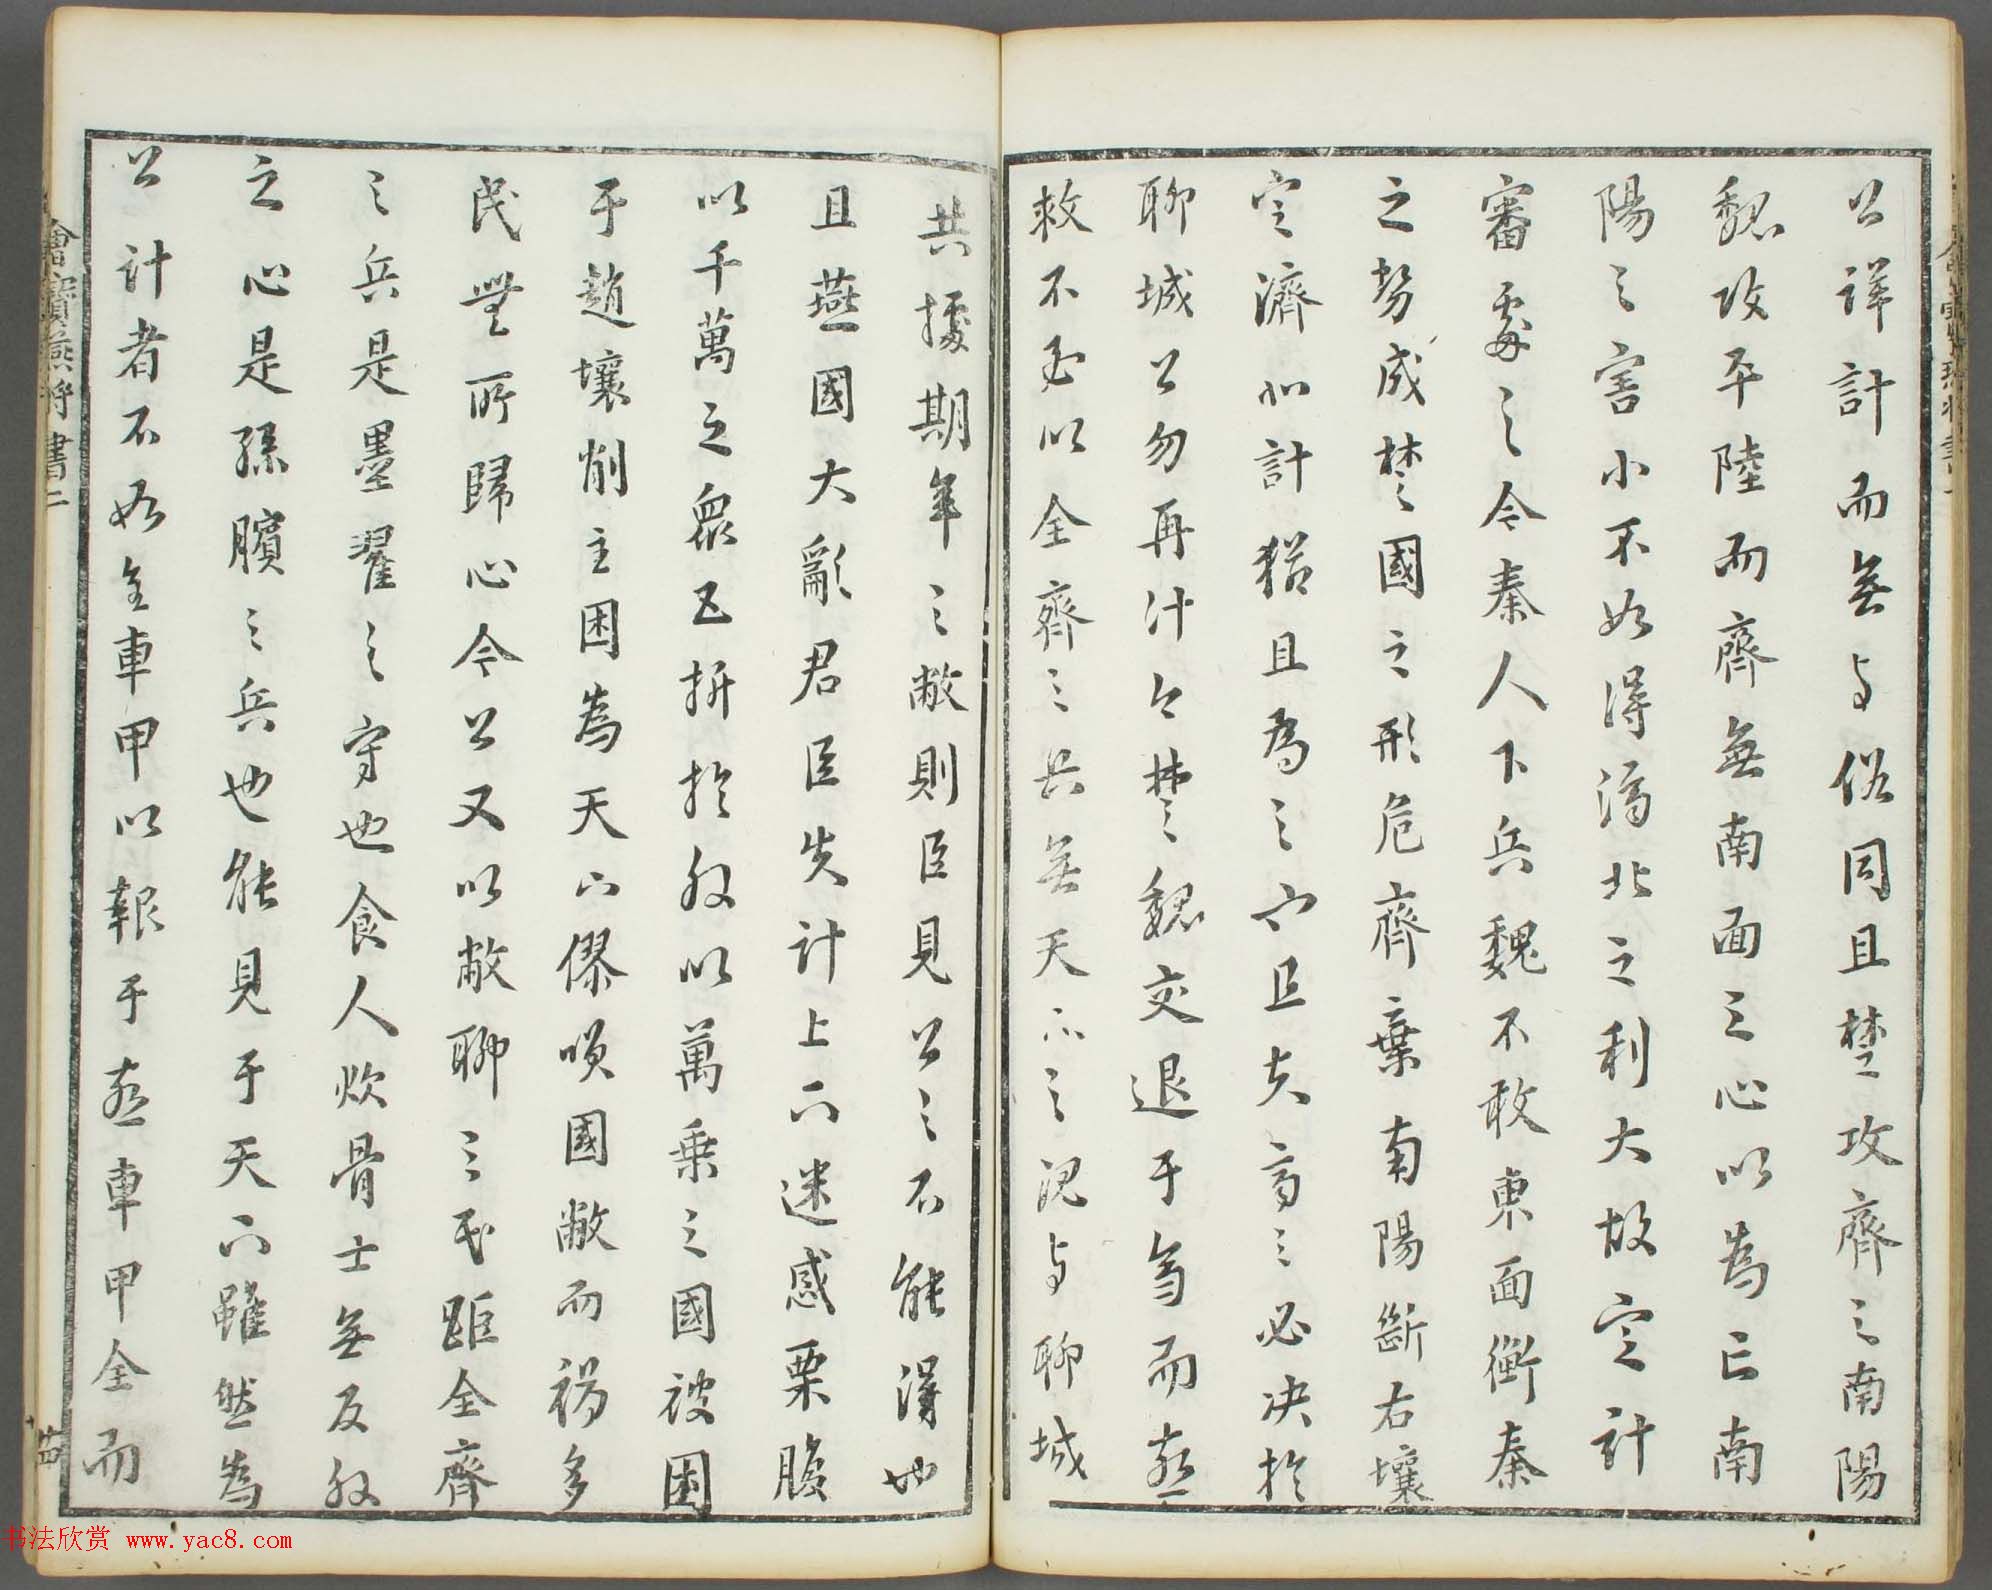 公詳計而無与俗同且楚攻齊之南陽
魏攻平陸而齊無南面之心以為亡南
陽之害小不如得濟北之利大故定計
審處之今秦人下兵魏不敢東面衡秦
之勢成楚國之形危齊棄南陽斷右壤
定濟北計猶且為之也且夫齊之必決於
聊城公勿再計今楚魏交退于齊而燕
救不至以全齊之兵無天下之規与聊城
共據期年之敝則臣見公之不能得也
且燕國大亂君臣失計上下迷惑栗腹
以千萬之眾五折於外以萬乘之國被圍
于趙壤削主困為天下僇唉國敝而禍多
民無所歸心今公又以敝聊之民距全齊
之兵是墨翟之守也食人炊骨士無反外
之心是孫臏之兵也能見于天下雖然為
公計者不如全車甲以報于燕車甲全而
會寶燕將書二
廿四
书法欣赏 www.yac8.com